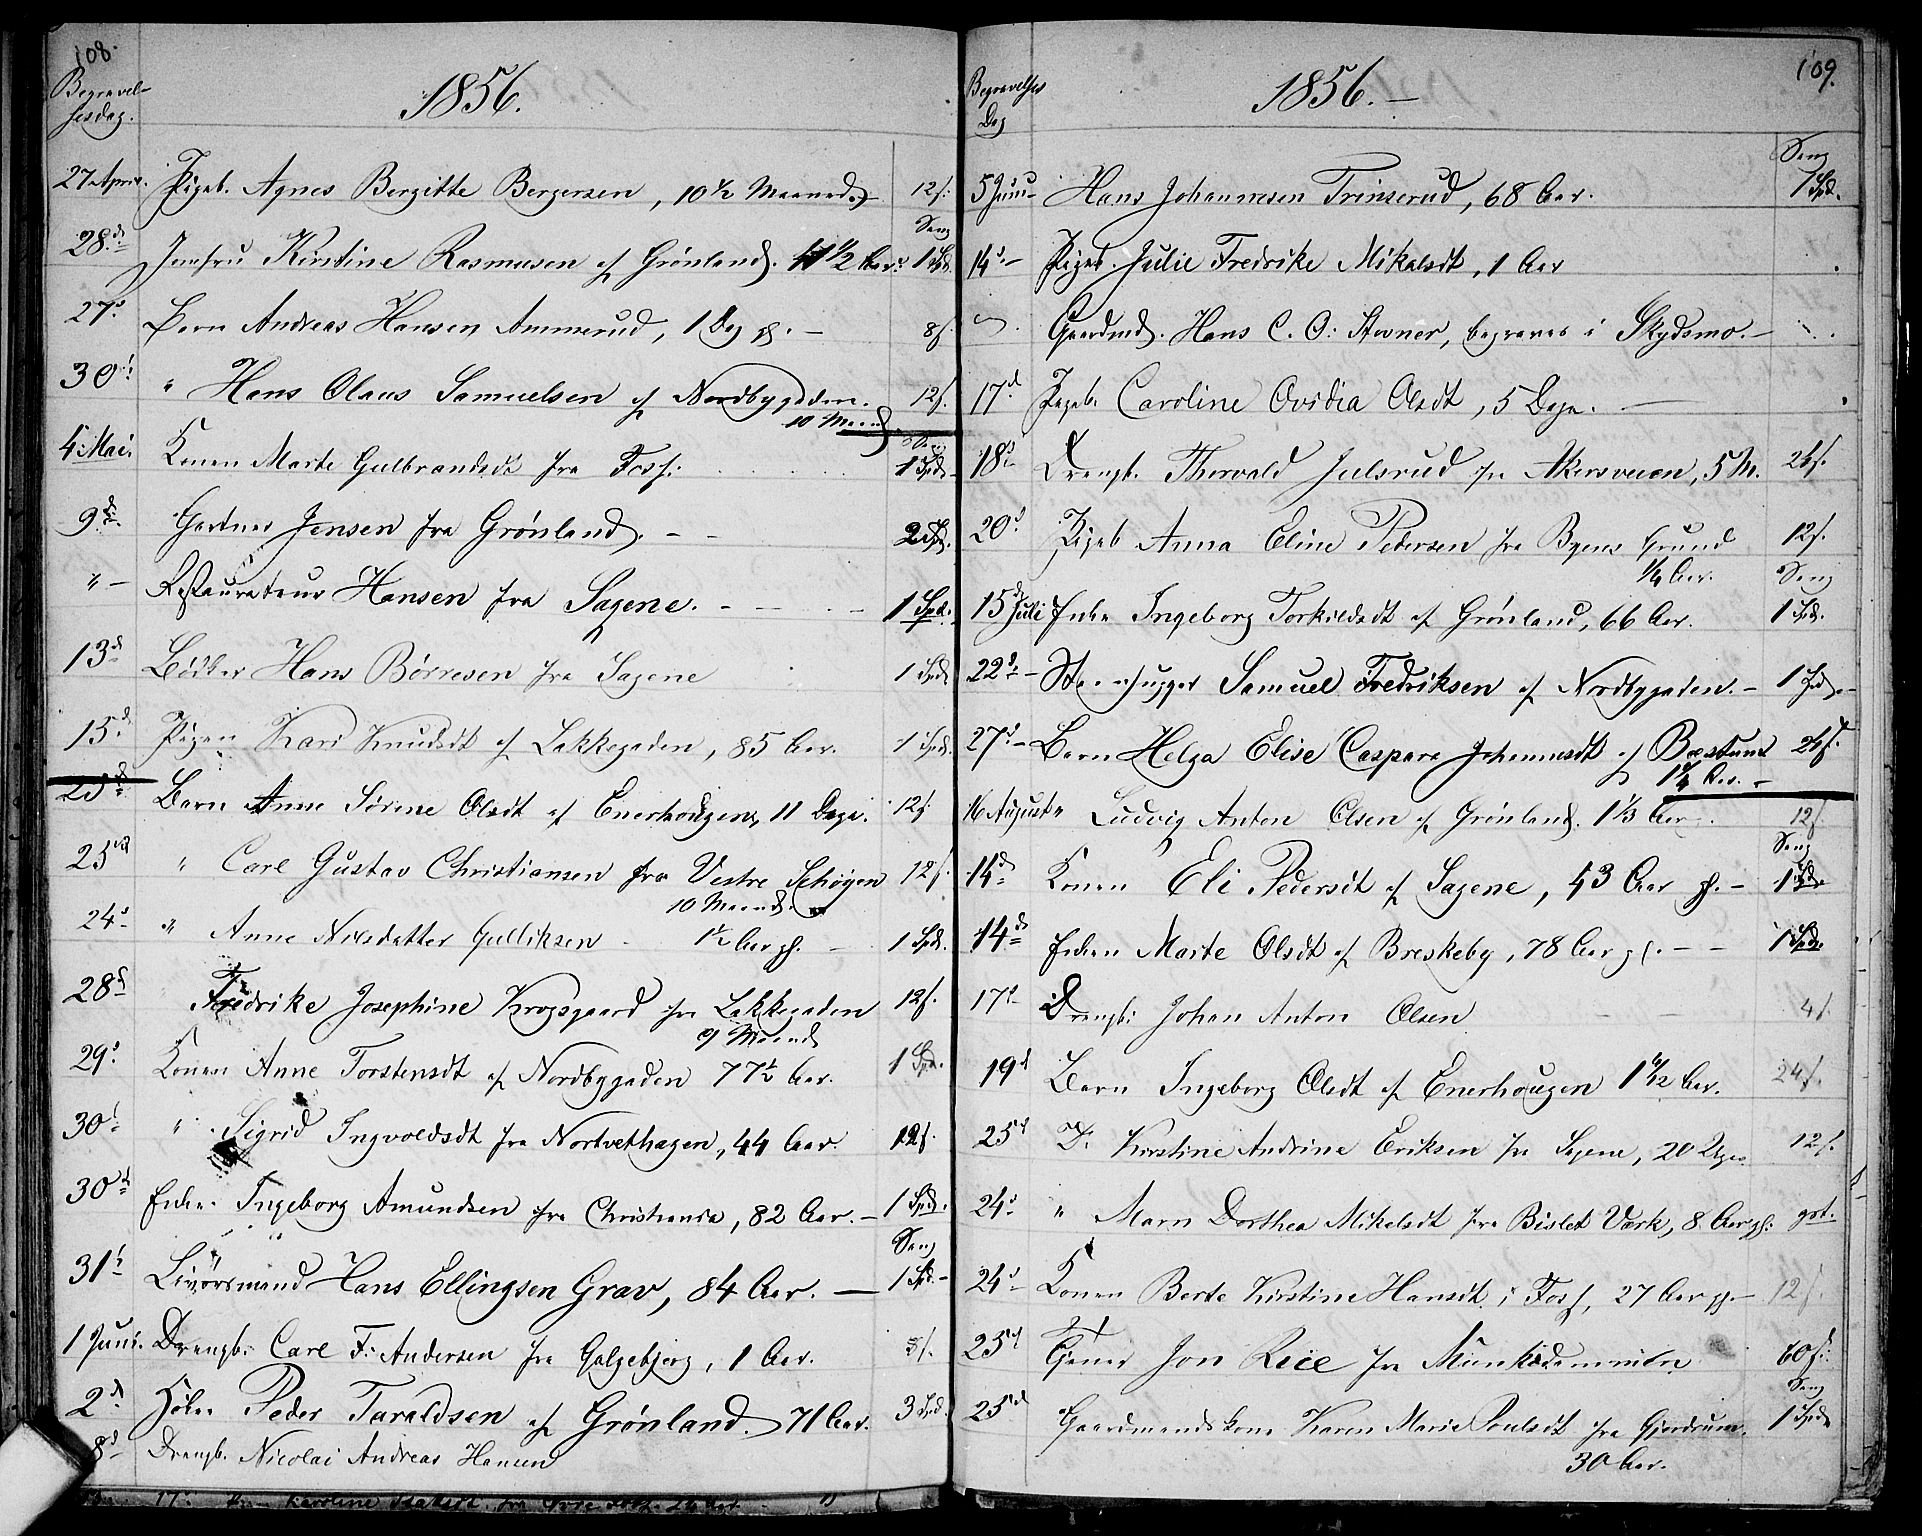 108.
Begravel-
sesdag.
1856.
27 April. Pigeb. Agnes Bergitte Bergersen, 10 ½ Maaned 12 ſ.
Seng
28.d. Jomfru Kirstine Rasmusen af Grønland. 41 ½ Aar. 1 Spd.
27.d Barn Andreas Hansen Ammerud, 1 Dag gl. – 8 ſ
30.d " Hans Olaus Samuelsen af Nordbygaden. 12 ſ.
10 Maand.
Seng
4. Mai. Konen Marte Gulbrandsdt fra Foss. 1 Spd.
9.d. Gartner Jensen fra Grønland. – – 2 Spd.
" – Restaurateur Hansen fra Sagene. – – – 1 Spd.
13.d Bødker Hans Børresen fra Sagene 1 Spd
15.d Pigen Kari Knudsdt af Lakkegaden, 85 Aar. 1 Spd.
23.d. Barn Anne Sørine Olsdt af Enerhougen, 11 Dage. 12 ſ.
25.d " Carl Gustav Christiansen fra Vestre Schøyen 12 ſ.
10 Maand.
24.d " Anne Nilsdatter Gulliksen 1½ Aar gl. – 1 Spd.
28.d Fredrike Josephine Krogsgaard fra Lakkegaden 12 ſ.
9 Maand
29.d Konen Anne Torstensdt af Nordbygaden 77½ Aar. 1 Spd.
30.d " Sigrid Ingvoldsdt fra Nortvethagen, 44 Aar. 12 ſ.
30.d Enken Ingeborg Amundsen fra Christiania, 82 Aar. – 1 Spd.
Seng
31.d Livørsmand Hans Ellingsen Grav, 84 Aar. — 1 Spd. –
1 Juni. Drengb. Carl F. Andersen fra Galgebjerg, 1 Aar. 8 ſ.
2.d Høker Peder Taraldsen af Grønland. 71 Aar. 3 Spd.
8.d Drengb. Nicolai Andreas Hansen
109.
Begravelses
Dag
1856. –
Seng
5 Juni – Hans Johannesen Trinserud, 68 Aar. 1 Spd.
14.d – Pigeb. Julie Fredrike Mikalsdt, 1 Aar
Gaardmd. Hans C. O. Stovner, begraves i Skydsmo. –
17.d Pigeb. Caroline Ovidia Olsdt, 5 Dage. —
18.d Drengb. Thorvald Julsrud fra Akersveien, 5 M. 24 ſ.
20.d Pigeb Anna Eline Pedersen fra Byens Grund 12 ſ.
¼ Aar. Seng
15.d Juli Enke Ingeborg Torkildsdt af Grønland, 66 Aar. 1 Spd.
22.d – Steenhugger Samuel Fredriksen af Nordbygaden. – 1 Spd. –
27.d – Barn Helga Elise Caspara Johannesdt af Bæstum 24 ſ.
Aar. –
16 August " Ludvig Anton Olsen af Grønland. 1 ⅓ Aar. 12 ſ.
Seng
14.d Konen Eli Pedersdt af Sagene, 43 Aar gl. – 1 Spd.
14.d Enken Marte Olsdt af Breskeby, 78 Aar gl. – – 1 Spd.
17.d Drengb. Johan Anton Olsen – – 4 ſ.
19.d Barn Ingeborg Olsdt af Enerhougen Aar. 24 ſ.
25.d D. Kirstine Andrine Eriksen fra Sagene, 20 Uger 12 ſ.
24.d " Maren Dorthea Mikelsdt fra Bislet Værk, 8 Aar gl. grt.
24.d – Konen Berte Kirstine Hansdt. i Foss, 27 Aar gl. – 12 ſ.
25.d Tjener Jon Reie fra Munkedammen 60 ſ.
Seng
25.d Gaardmandskone Karen Marie Poulsdt fra Gjerdrum. 1 Spd
30 Aar.